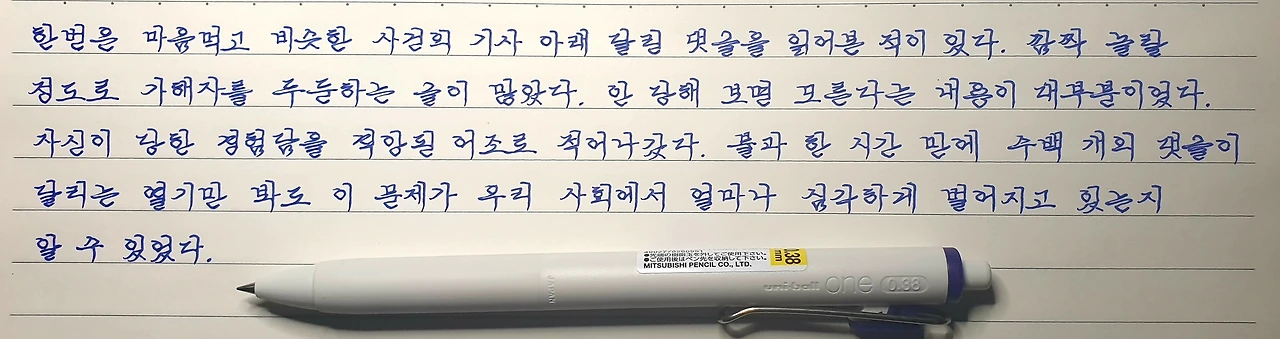 한번은 마음먹고 비슷한 사건의 기사 아래 달린 댓글을 읽어본 적이 있다. 깜짝 놀랄
정도로 가해자를 두둔하는 글이 많았다. 안 당해 보면 모른다는 내용이 대부분이었다.
자신이 당한 경험담을 격앙된 어조로 적어나갔다. 불과 한 시간 만에 수백 개의 댓글이
달리는 열기만 봐도 이 문제가 우리 사회에서 얼마나 심각하게 벌어지고 있는지
알 수 있었다.
●ご使用後はペン先を収納して下さい。
MITSUBISHI PENCIL CO., LTD.
0.38
mm
JAPAN
uni-ball one 0.38